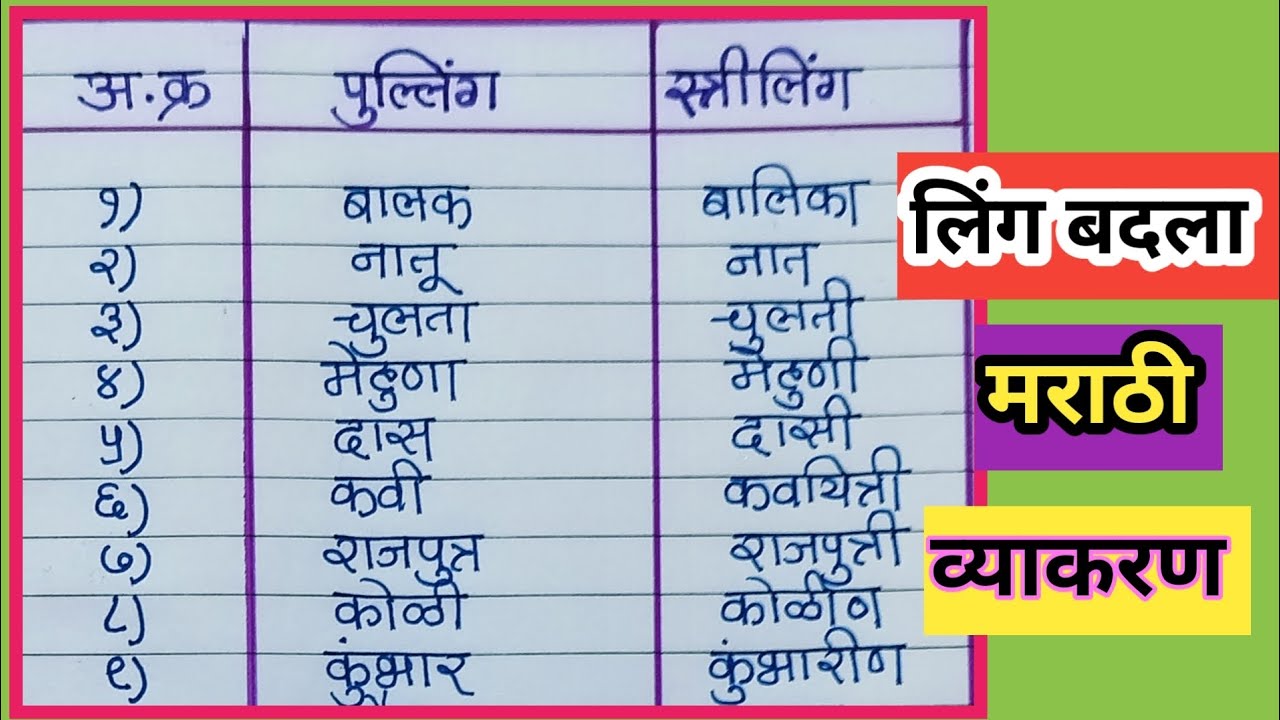 अ.क्र पुल्लिंग स्त्रीलिंग
१) बालक बालिका
२) नातू नात
३) चुलता चुलती
४) मेहुणा मेहुणी
५) दास दासी
६) कवी कवयित्री
७) राजपुत्र राजपुत्री
८) कोळी कोळीण
९) कुंभार कुंभारीण
लिंग बदला
मराठी
व्याकरण